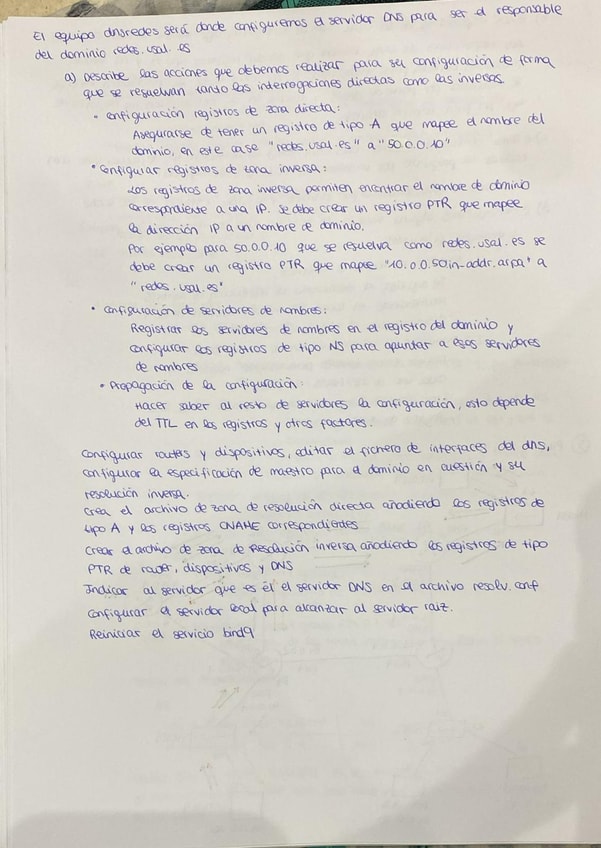 El equipo dnsredes será donde configuremos el servidor DNS para ser el responsable
del dominio redes.usal.es
a) Describe las acciones que debemos realizar para su configuración de forma
que se resuelvan tanto las interrogaciones directas como las inversas
• Configuración registros de zona directa:
Asegurarse de tener un registro de tipo A que mapee el nombre del
dominio, en este caso "redes.usal.es" a "50.0.0.10"
• Configurar registros de zona inversa:
Los registros de zona inversa permiten encontrar el nombre de dominio
correspondiente a una IP. Se debe crear un registro PTR que mapee
la dirección IP a un nombre de dominio.
Por ejemplo para 50.0.0.10 que se resuelva como redes.usal.es se
debe crear un registro PTR que mapee "10.0.0.50.in-addr.arpa" a
"redes.usal.es"
• Configuración de servidores de nombres:
Registrar los servidores de nombres en el registro del dominio y
configurar los registros de tipo NS para apuntar a esos servidores
de nombres
• Propagación de la configuración:
Hacer saber al resto de servidores la configuración, esto depende
del TTL en los registros y otros factores.
Configurar routes y dispositivos, editar el fichero de interfaces del dns,
configurar la especificación de maestro para el dominio en cuestión y su
resolución inversa.
Crea el archivo de zona de resolución directa añadiendo los registros de
tipo A y los registros CNAME correspondientes
Crear el archivo de zona de Resolución inversa añadiendo los registros de tipo
PTR de router, dispositivos y DNS
Indicar al servidor que es él el servidor DNS en el archivo resolv.conf
Configurar el servidor local para alcanzar al servidor raíz.
Reiniciar el servicio bind9